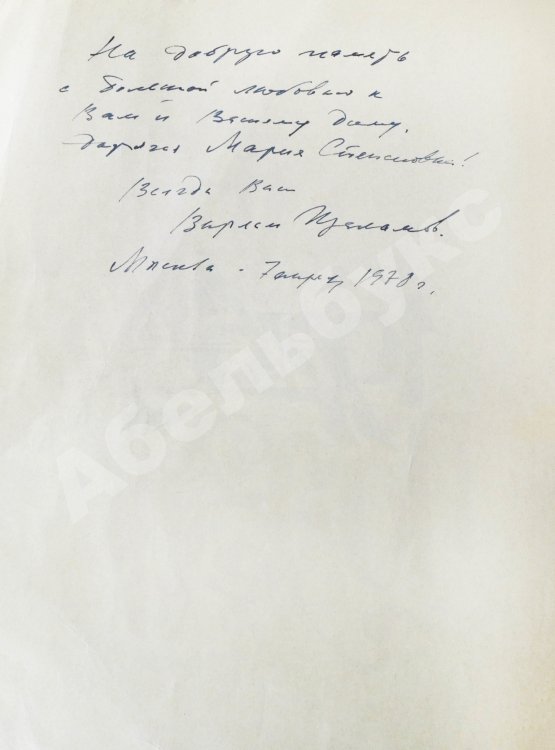 На добрую память
с большой любовью к
Вам и Вашему дому,
дорогая Мария Степановна!
Всегда Ваш
Варлам Шаламов.
Москва - 1978 г.
Абельбукс